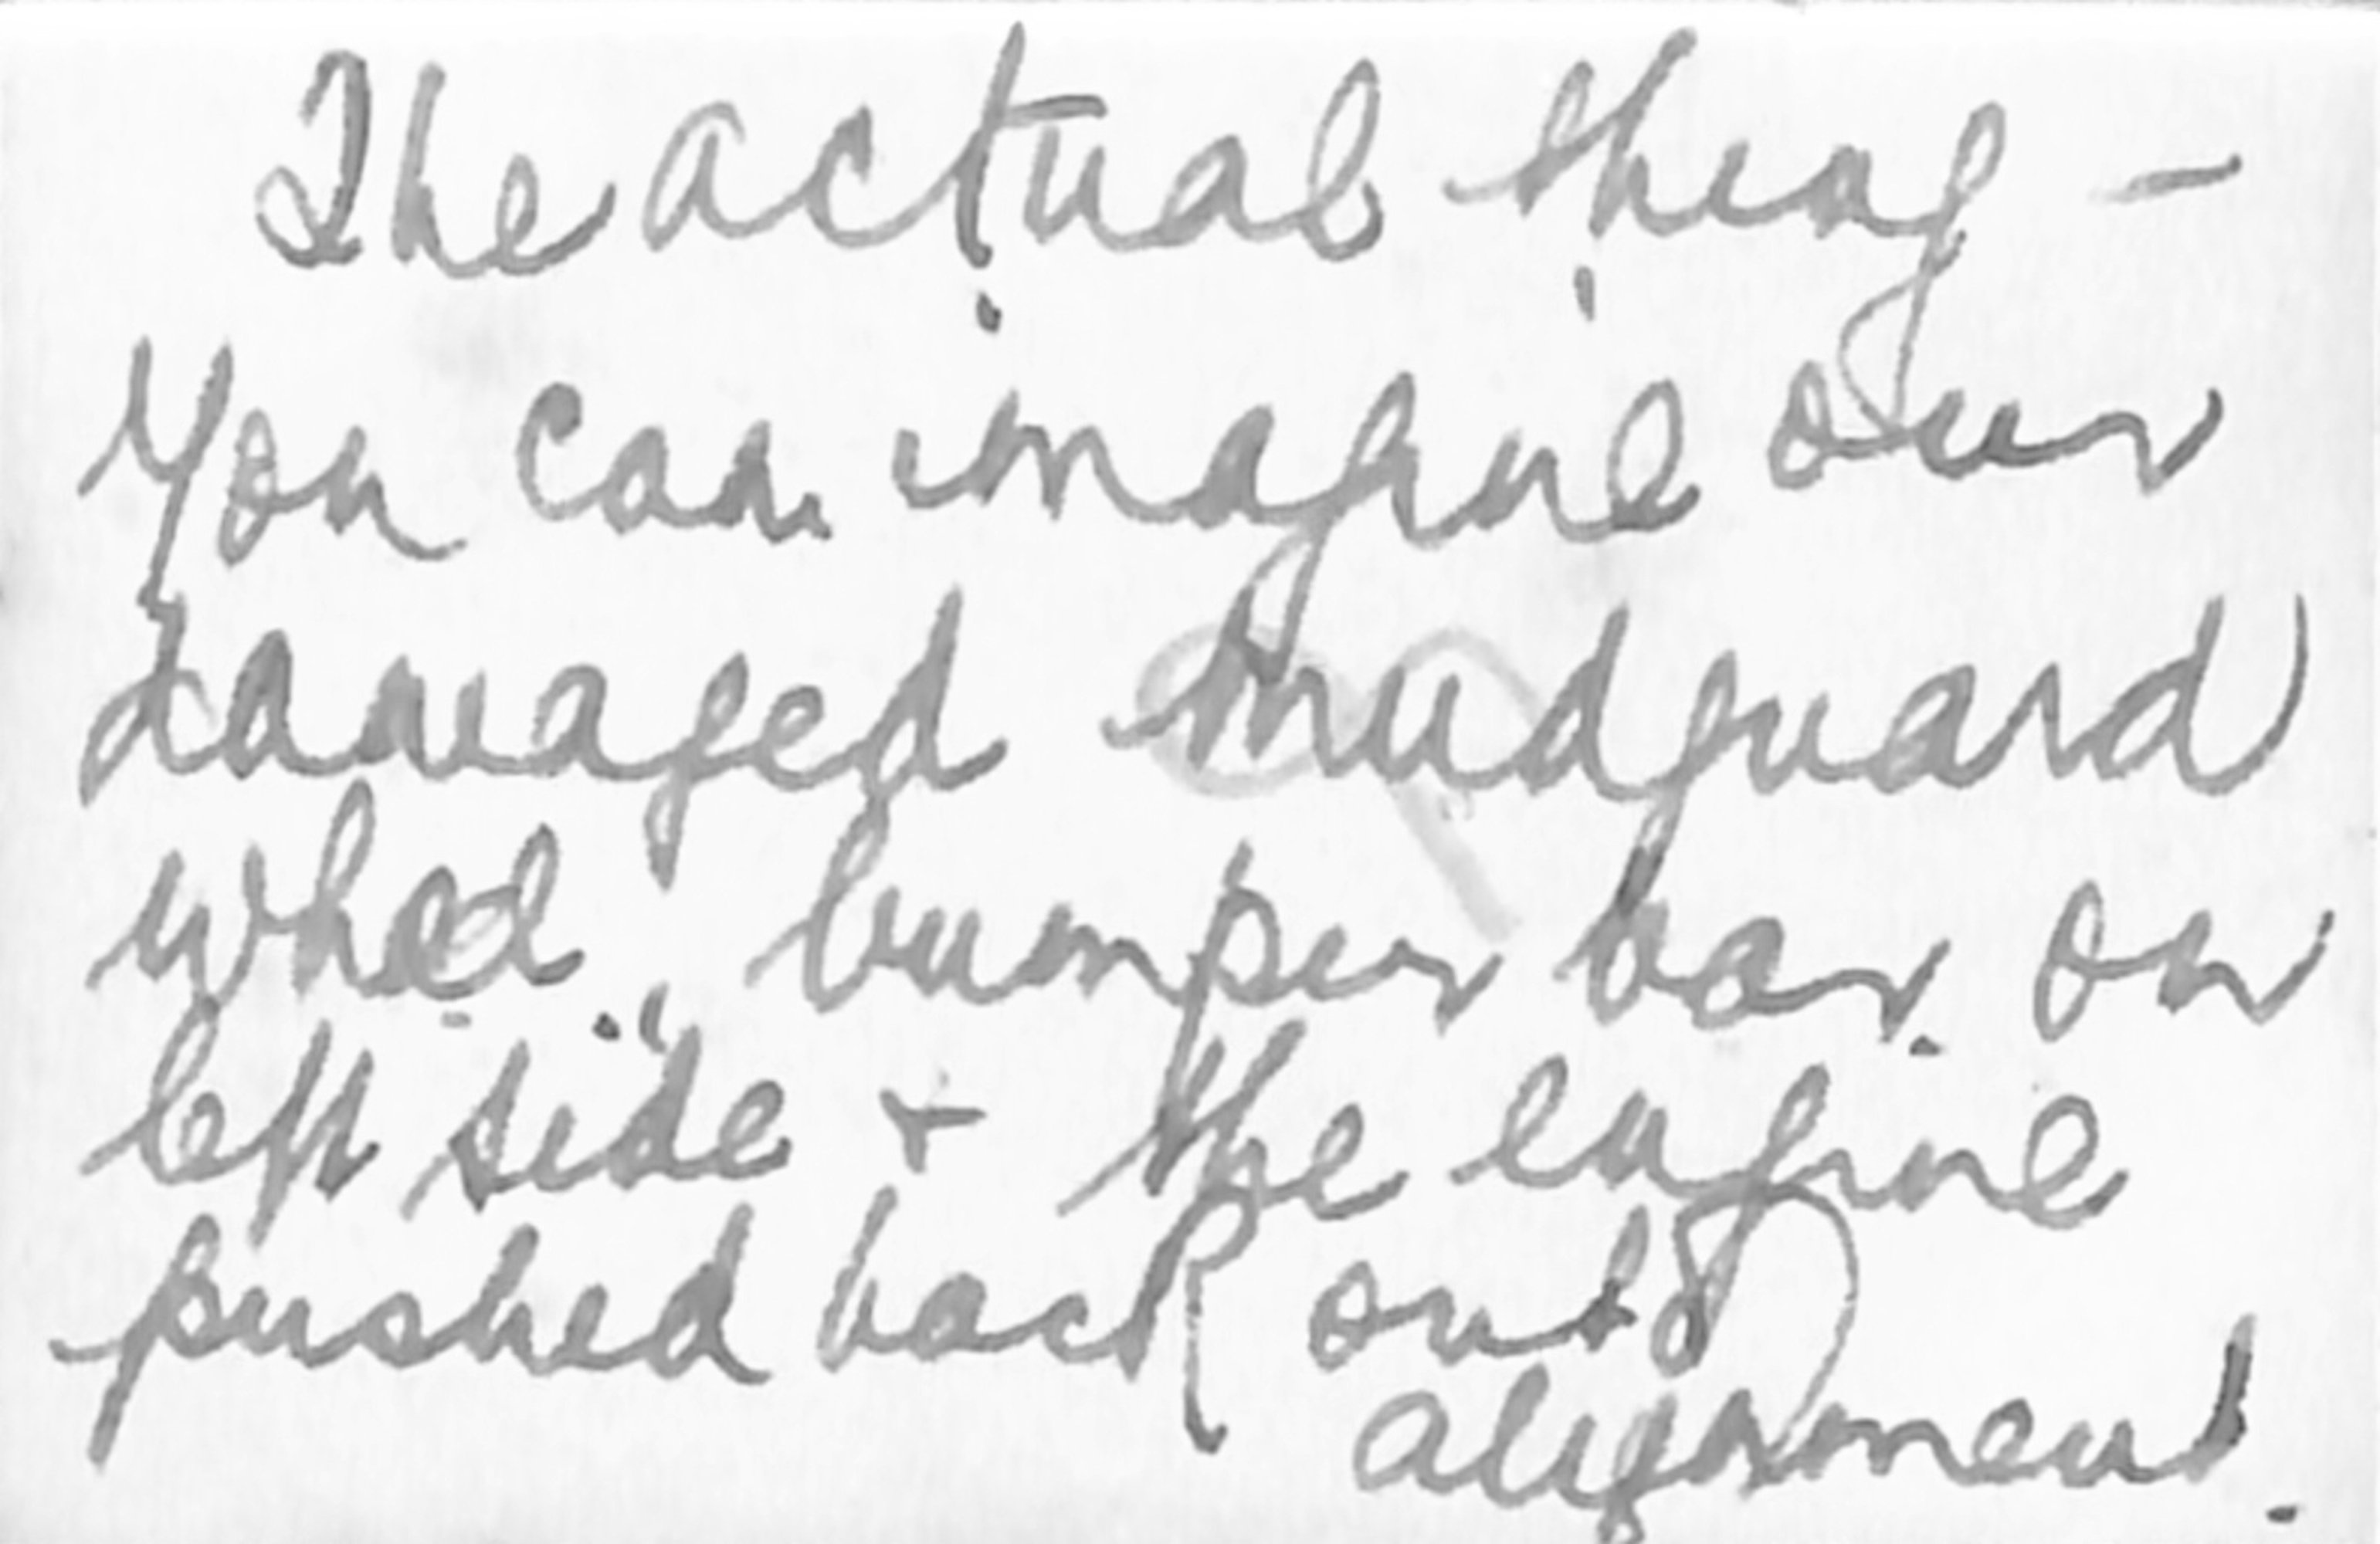 The actual thing -
You can imagine our
damaged mudguard
wheel, bumper bar on
left side + the engine
pushed back out of
alignment.